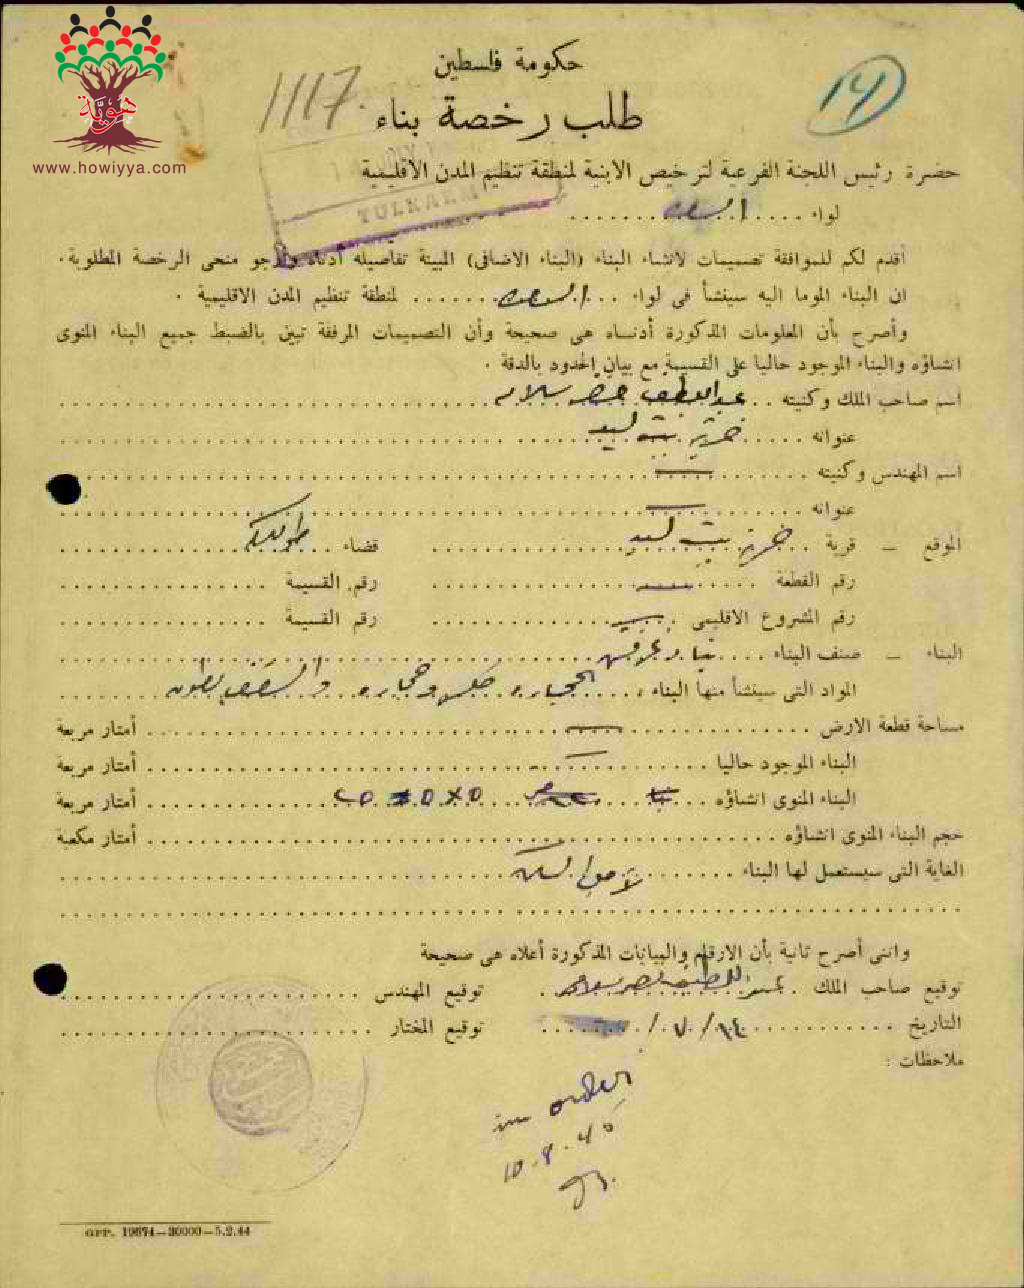 هوية
www.howiyya.com
حكومة فلسطين
1117
14
طلب رخصة بناء
TULKARM
حضرة رئيس اللجنة الفرعية لترخيص الابنية لمنطقة تنظيم المدن الاقليمية
لواء
أقدم لكم للموافقة تصميمات لانشاء البناء (البناء الاضافى) المبينة تفاصيله أدناه وارجو منحى الرخصة المطلوبة.
ان البناء الموما اليه سينشأ فى لواء لمنطقة تنظيم المدن الاقليمية .
وأصرح بأن المعلومات المذكورة أدناه هى صحيحة وأن التصميمات المرفقة تبين بالضبط جميع البناء المنوى
انشاؤه والبناء الموجود حاليا على القسيمة مع بيان الحدود بالدقة .
اسم صاحب الملك وكنيته عبد اللطيف خضر سلامه
عنوانه خربة بيت ليد
اسم المهندس وكنيته —
عنوانه —
الموقع — قرية خربة بيت ليد قضاء طولكرم
رقم القطعة — رقم القسيمة
رقم المشروع الاقليمى — رقم القسيمة
البناء — صنف البناء
المواد التى سينشأ منها البناء الحجاره والسقف بطون
مساحة قطعة الارض — أمتار مربعة
البناء الموجود حاليا — أمتار مربعة
البناء المنوى انشاؤه ٥x٥ ٢٥ أمتار مربعة
حجم البناء المنوى انشاؤه أمتار مكعبة
الغاية التى سيستعمل لها البناء لاجل السكن
وانى أصرح ثانية بأن الارقام والبيانات المذكورة أعلاه هى صحيحة
توقيع صاحب الملك توقيع المهندس
التاريخ ١٤/٧/ توقيع المختار
ملاحظات :
in order
10.8.45
GPP. 19674—30000—5.2.44